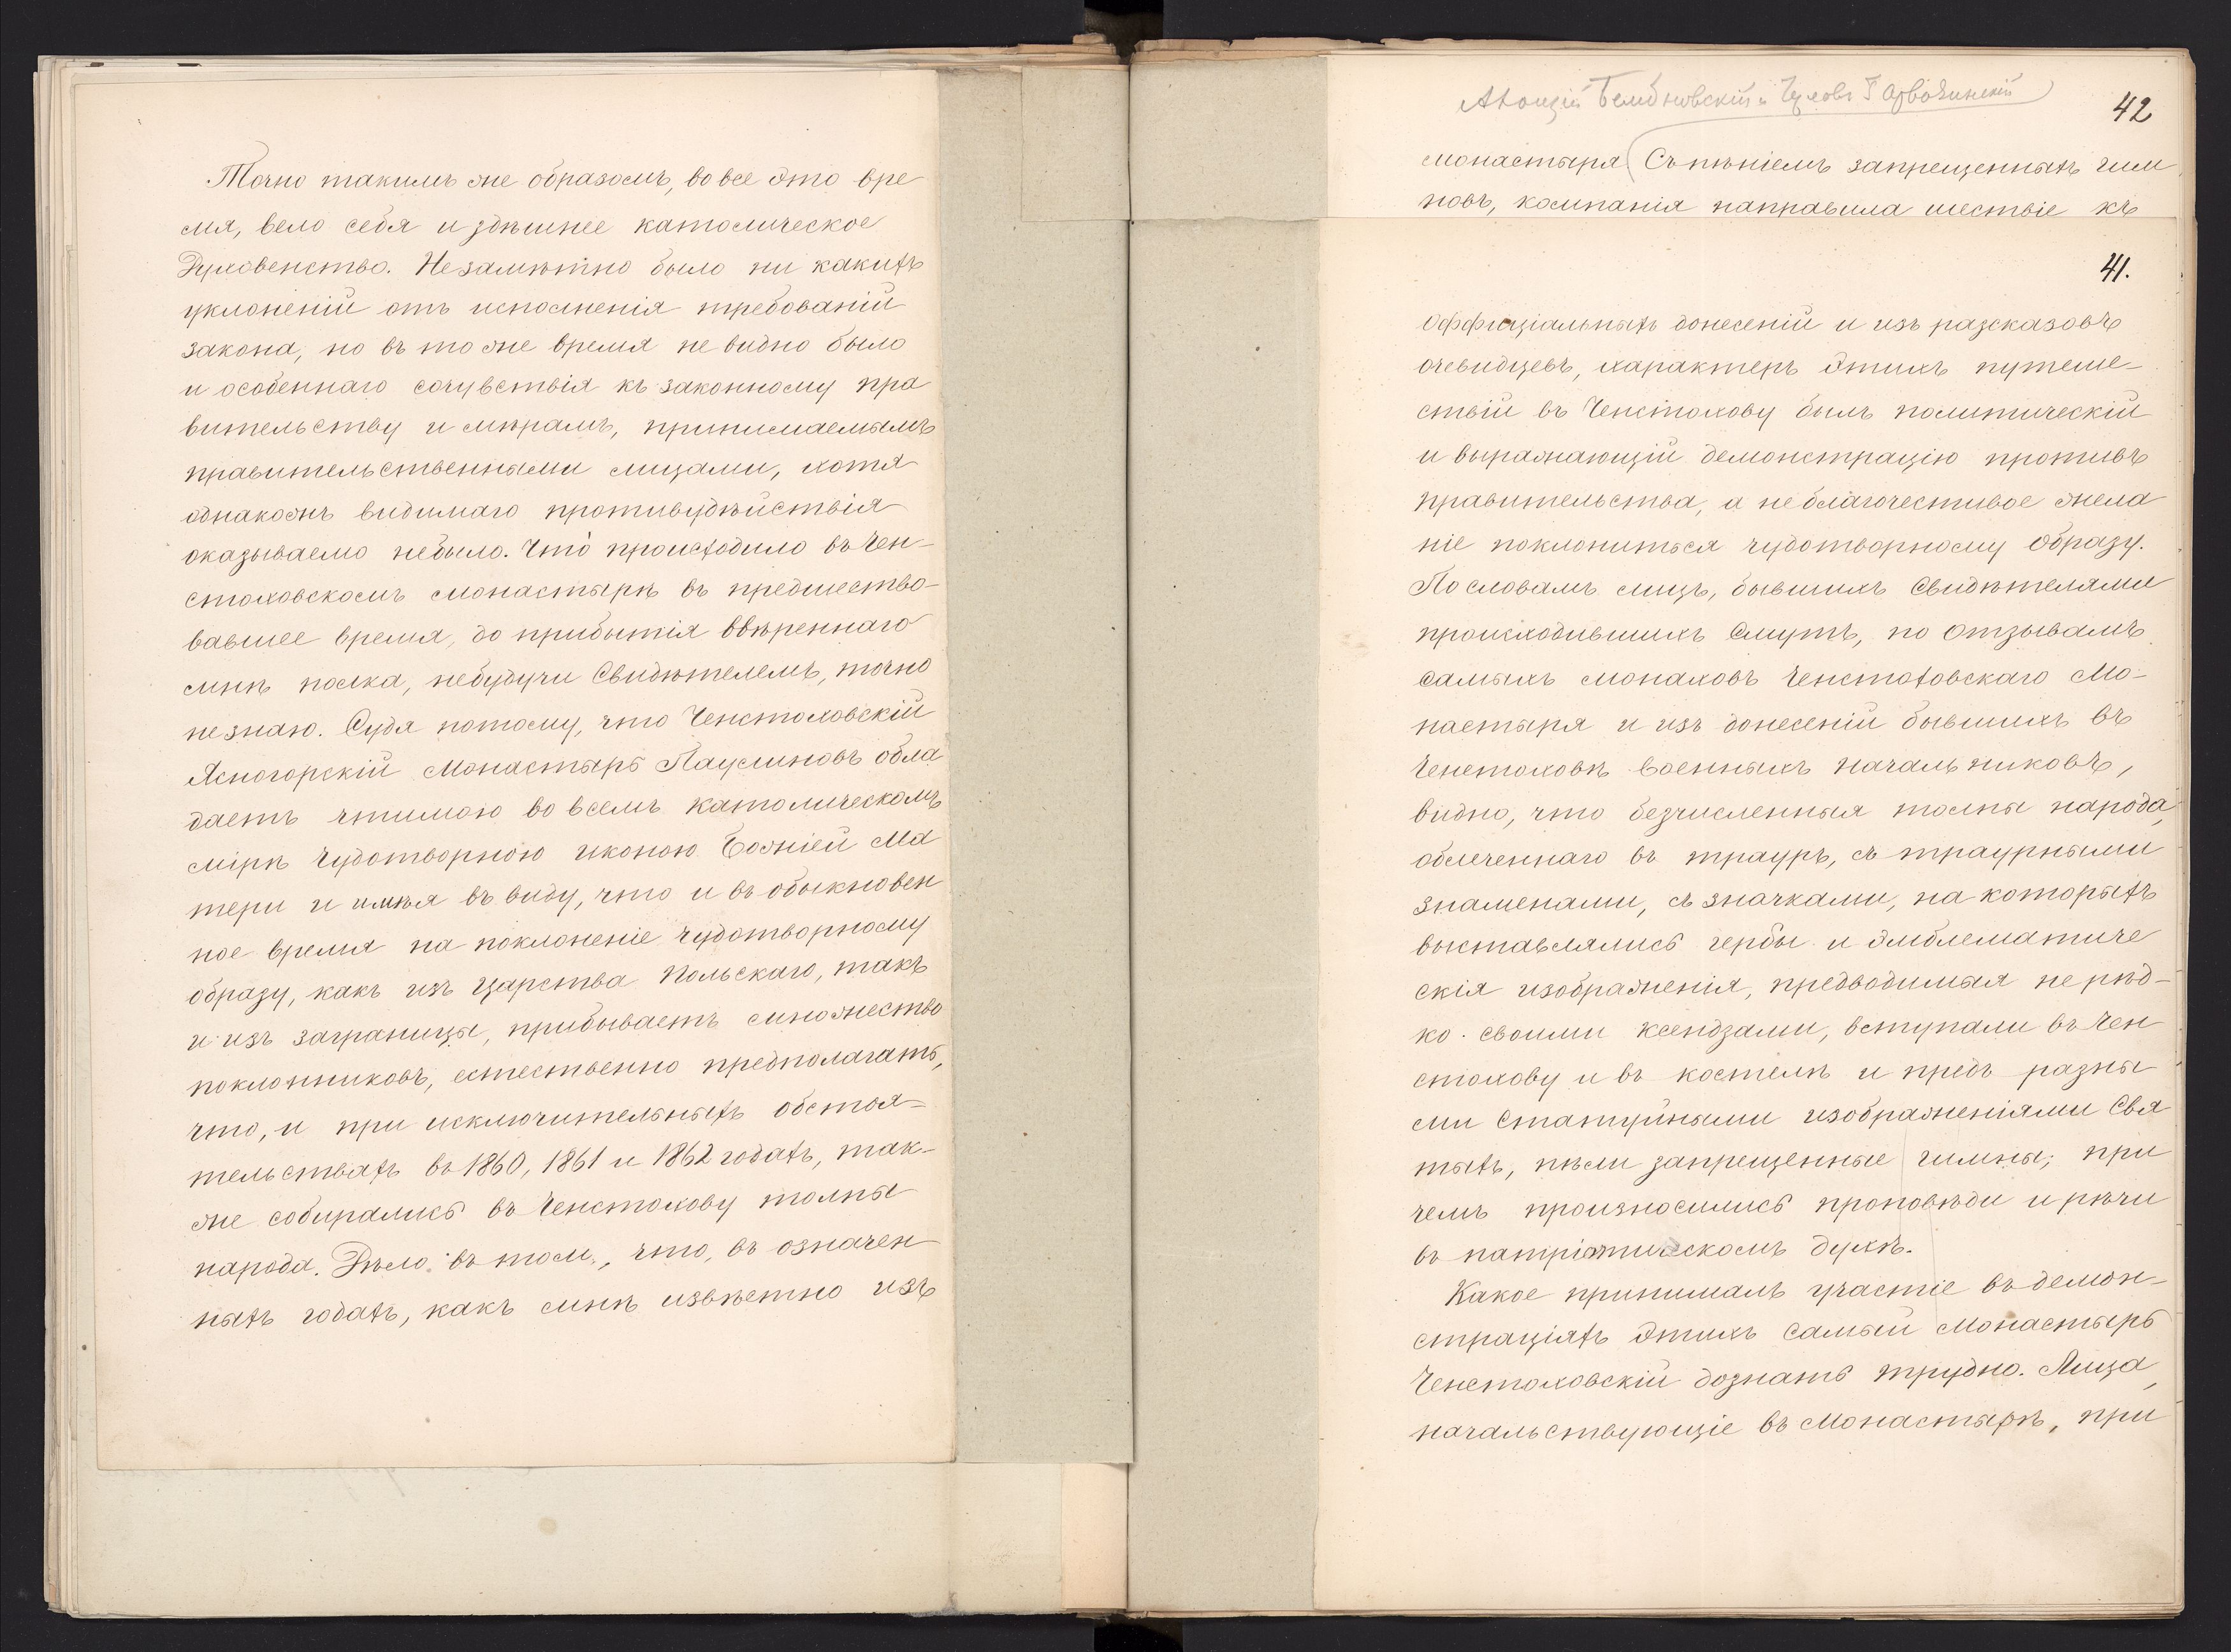 Точно такимъ же образомъ, во все это вре
мя, вело себя и здѣшнее католическое
Духовенство. Незамѣтно было ни какихъ
уклоненій отъ исполненія требованій
закона, но въ то же время не видно было
и особеннаго сочувствія къ законному пра
вительству и мѣрамъ, принимаемымъ
правительственными лицами, хотя
однакожъ видимаго противудѣйствія
оказываемо небыло. Что́ происходило въ Чен-
стоховскомъ монастырѣ въ предшество-
вавшее время, до прибытія ввѣреннаго
мнѣ полка, небудучи свидѣтелемъ, точно
незнаю. Судя потому, что Ченстоховскій
Ясногорскій Монастырь Паулиновъ обла
даетъ чтимою во всемъ католическомъ
мірѣ чудотворною иконою Божіей Ма
тери и имѣя въ виду, что и въ обыкновен
ное время на поклоненіе чудотворному
образу, какъ изъ Царства Польскаго, такъ
и изъ заграницы, прибываетъ множество
поклонниковъ, естественно предполагать,
что, и при исключительныхъ обстоя-
тельствахъ въ 1860, 1861 и 1862 годахъ, так-
же собирались въ Ченстохову толпы
народа. Дѣло въ том, что, въ означен
ныхъ годахъ, какъ мнѣ извѣстно изъ
42
монастыря (Съ пѣніемъ запрещенныхъ гим
новъ, компанія направила шествіе къ
41.
оффиціальныхъ донесеній и изъ разсказовъ
очевидцевъ, характеръ этихъ путеше-
ствій въ Ченстохову былъ политическій
и выражающій демонстрацію противъ
правительства, а не благочестивое жела
ніе поклониться чудотворному образу.
По словамъ лицъ, бывшихъ свидѣтелями
происходившихъ смутъ, по отзывамъ
самыхъ монаховъ Ченстоховскаго Мо-
настыря и изъ донесеній бывшихъ въ
Ченстоховѣ военныхъ начальниковъ,
видно, что безчисленныя толпы народа,
облеченнаго въ трауръ, съ траурными
знаменами, съ значками, на которыхъ
выставлялись гербы и эмблематиче
скія изображенія, предводимыя не рѣд-
ко своими ксендзами, вступали въ Чен
стохову и въ костелѣ и предъ разны
ми статуйными изображеніями Свя
тыхъ, пѣли запрещенные гимны; при
чемъ произносились проповѣди и рѣчи
въ патріотическомъ духѣ.
Какое принималъ участіе въ демон-
страціяхъ этихъ самый Монастырь
Ченстоховскій дознать трудно. Лица,
начальствующіе въ Монастырѣ, при